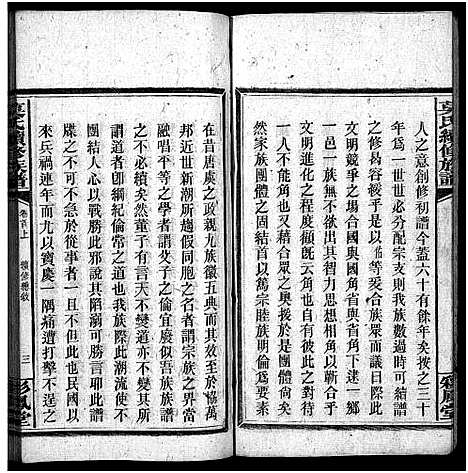 人之意創修初譜今蓋六十有餘年矣按之三十
年爲一世世必分配宗支则族譜
之修曷容緩乎是以等爰合族眾而議續譜
邑一族無不欲出其智力思想相角以
文明競爭之塲與國角以建一鄉
文明進化之程度顧旣云角也自有彼此之對待
有一不力不能角也又藉合眾之與接於是團體尙矣
然家族團體之固結首以篤宗睦族明倫爲要素
在昔唐虞之政親九族徽五典而至於協萬
邦近世新潮所趨假同胞之名者當宗族之界當
融倡平等之學者謂父子之倫宜廢似吾族譜
之不必續矣然董子有言天不變道亦不變
謂道者卽綱紀倫常之道也我族際此潮流使不
團結人心以戰勝此邪說其陷溺可勝言耶此譜
牒之不可不急於從事者一也民國以
來兵禍連年而尤以寶慶一隅痛遭打擊不一
莫氏續修族譜
卷首上
續修譜敘
三
彩鳳堂
莫氏續修族譜
彩鳳堂